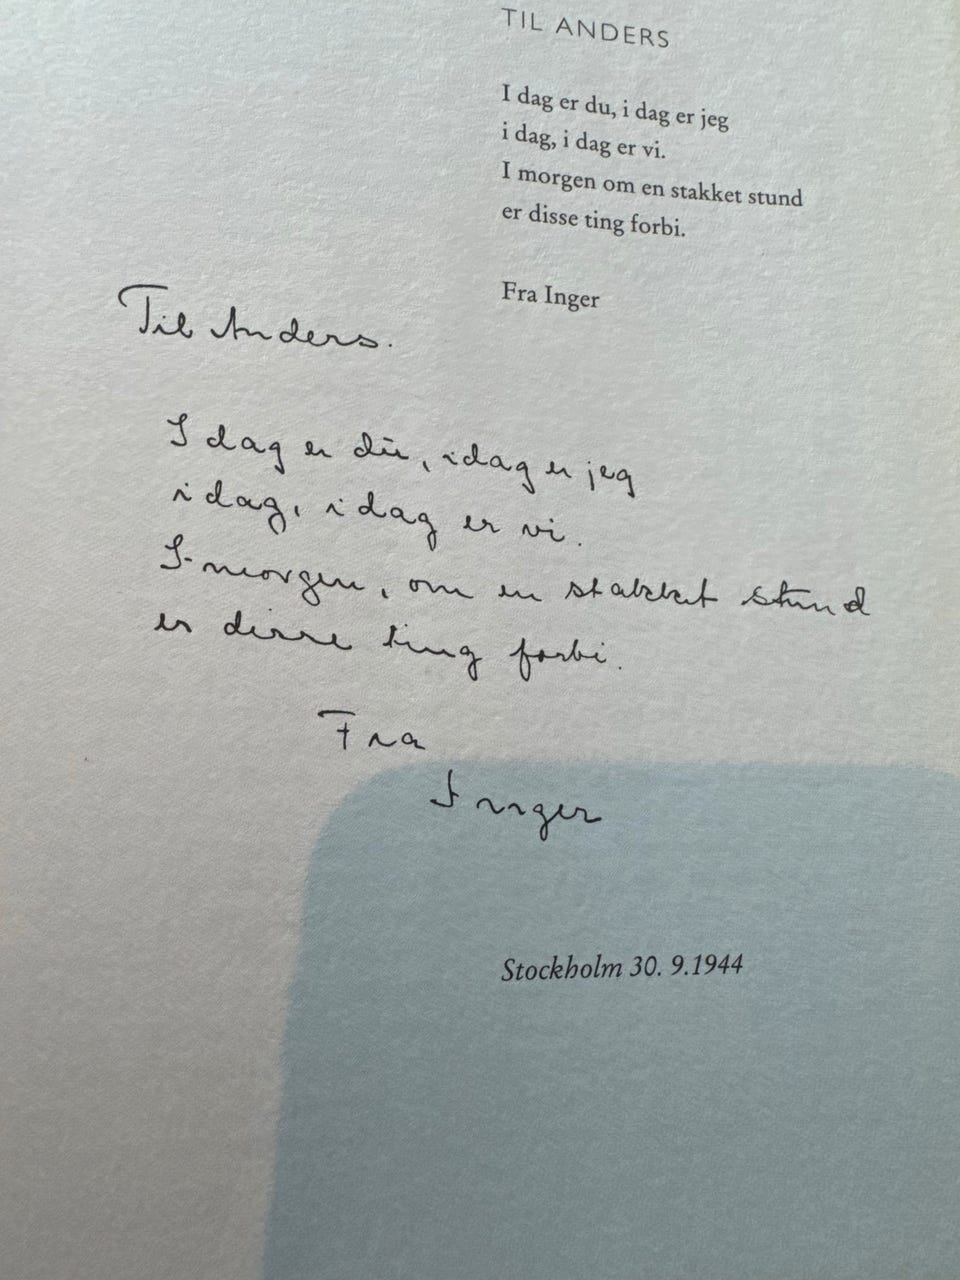 TIL ANDERS
I dag er du, i dag er jeg
i dag, i dag er vi.
I morgen om en stakket stund
er disse ting forbi.
Fra Inger
Til Anders.
I dag er du, idag er jeg
i dag, i dag er vi.
I-morgen, om en stakket stund
er disse ting forbi.
Fra
Inger
Stockholm 30. 9.1944